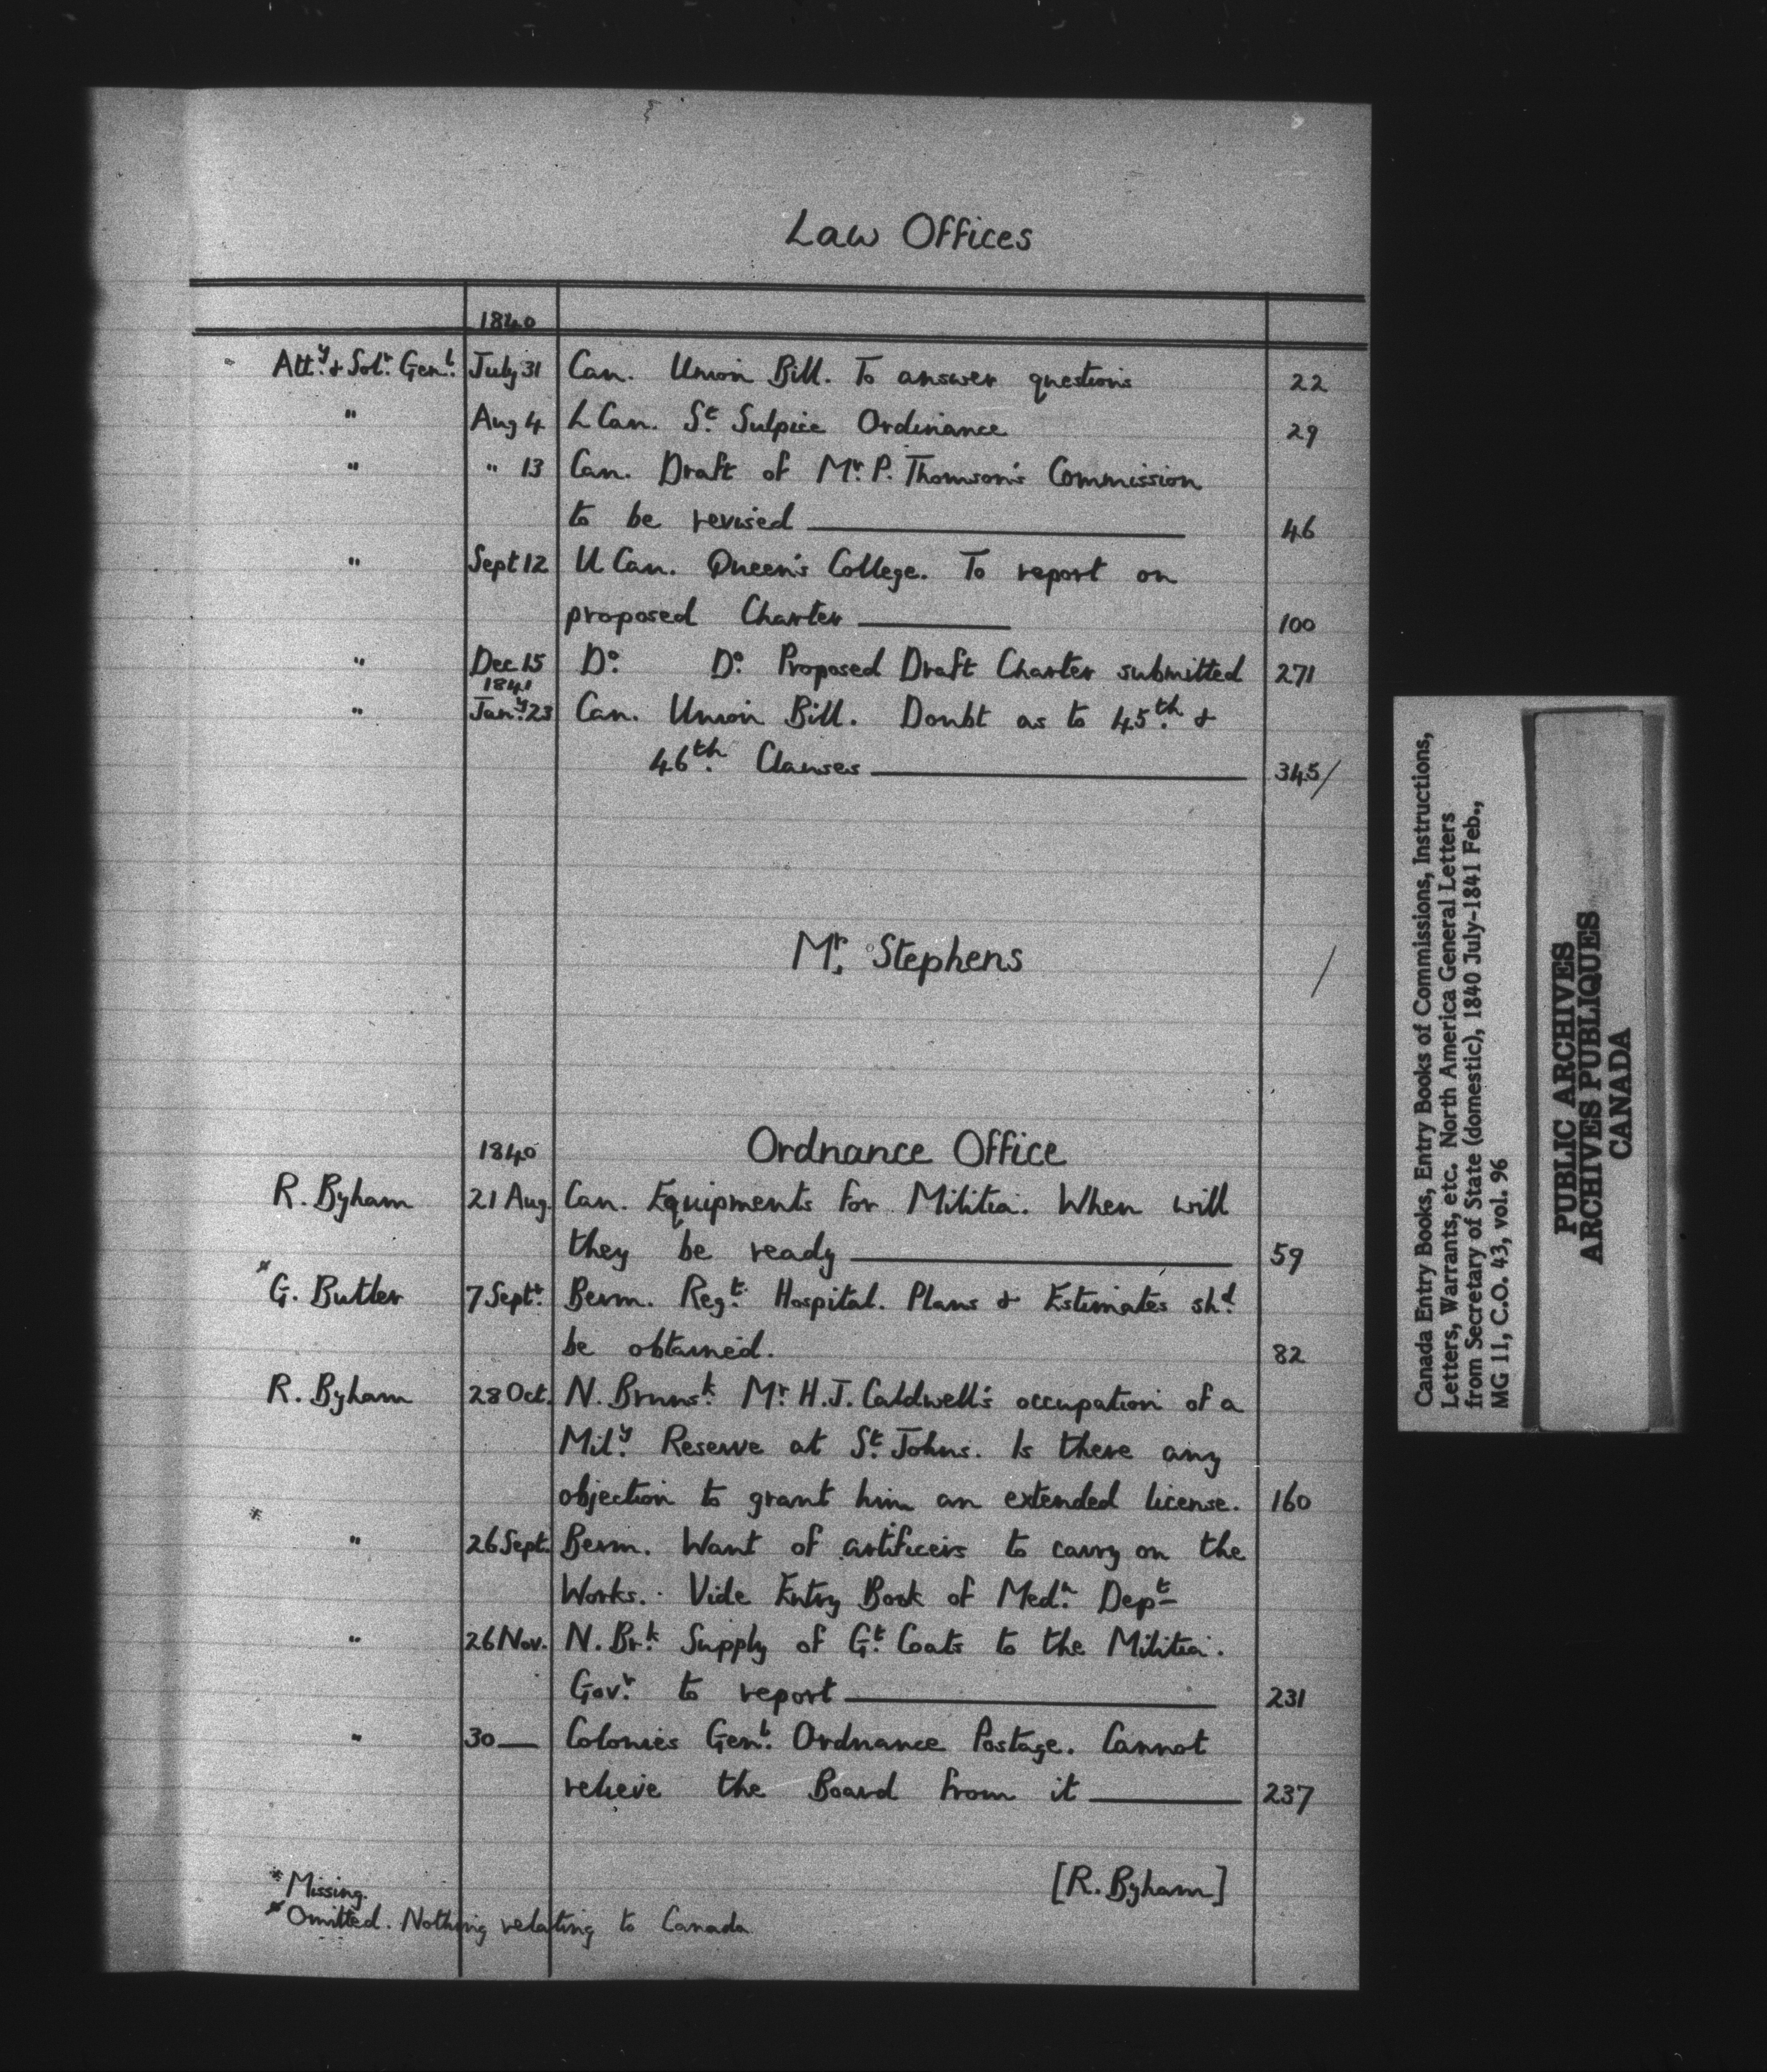 Law Offices
1840
Atty. & Solr. Genl. July 31 Can. Union Bill. To answer questions 22
" Aug 4 L Can. St. Sulpice Ordinance 29
" " 13 Can. Draft of Mr. P. Thomson's Commission
to be revised 46
" Sept 12 U Can. Queen's College. To report on
proposed Charter 100
" Dec 15 Do. Do. Proposed Draft Charter submitted 271
1841
" Jany. 23 Can. Union Bill. Doubt as to 45th. &
46th. Clauses 345/
Mr. Stephens /
1840 Ordnance Office
R. Byham 21 Aug. Can. Equipments for Militia. When will
they be ready 59
* G. Butler 7 Sept. Berm. Regt. Hospital. Plans & Estimates shd.
be obtained. 82
R. Byham 28 Oct. N. Brunsk. Mr. H.J. Caldwell's occupation of a
Mily. Reserve at St. Johns. Is there any
objection to grant him an extended license. 160
* " 26 Sept. Berm. Want of artificers to carry on the
Works. Vide Entry Book of Medn. Dept
" 26 Nov. N. Brk. Supply of Gt. Coats to the Militia.
Govr. to report 231
" 30 — Colonies Genl. Ordnance Postage. Cannot
relieve the Board from it 237
[R. Byham]
* Missing.
* Omitted. Nothing relating to Canada
Canada Entry Books, Entry Books of Commissions, Instructions,
Letters, Warrants, etc. North America General Letters
from Secretary of State (domestic), 1840 July-1841 Feb.,
MG 11, C.O. 43, vol. 96
PUBLIC ARCHIVES
ARCHIVES PUBLIQUES
CANADA